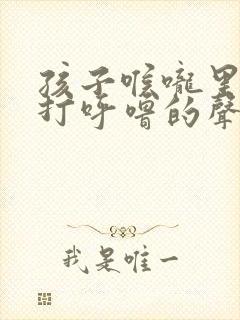 孩子喉嚨里
打呼嚕的聲
我是唯一